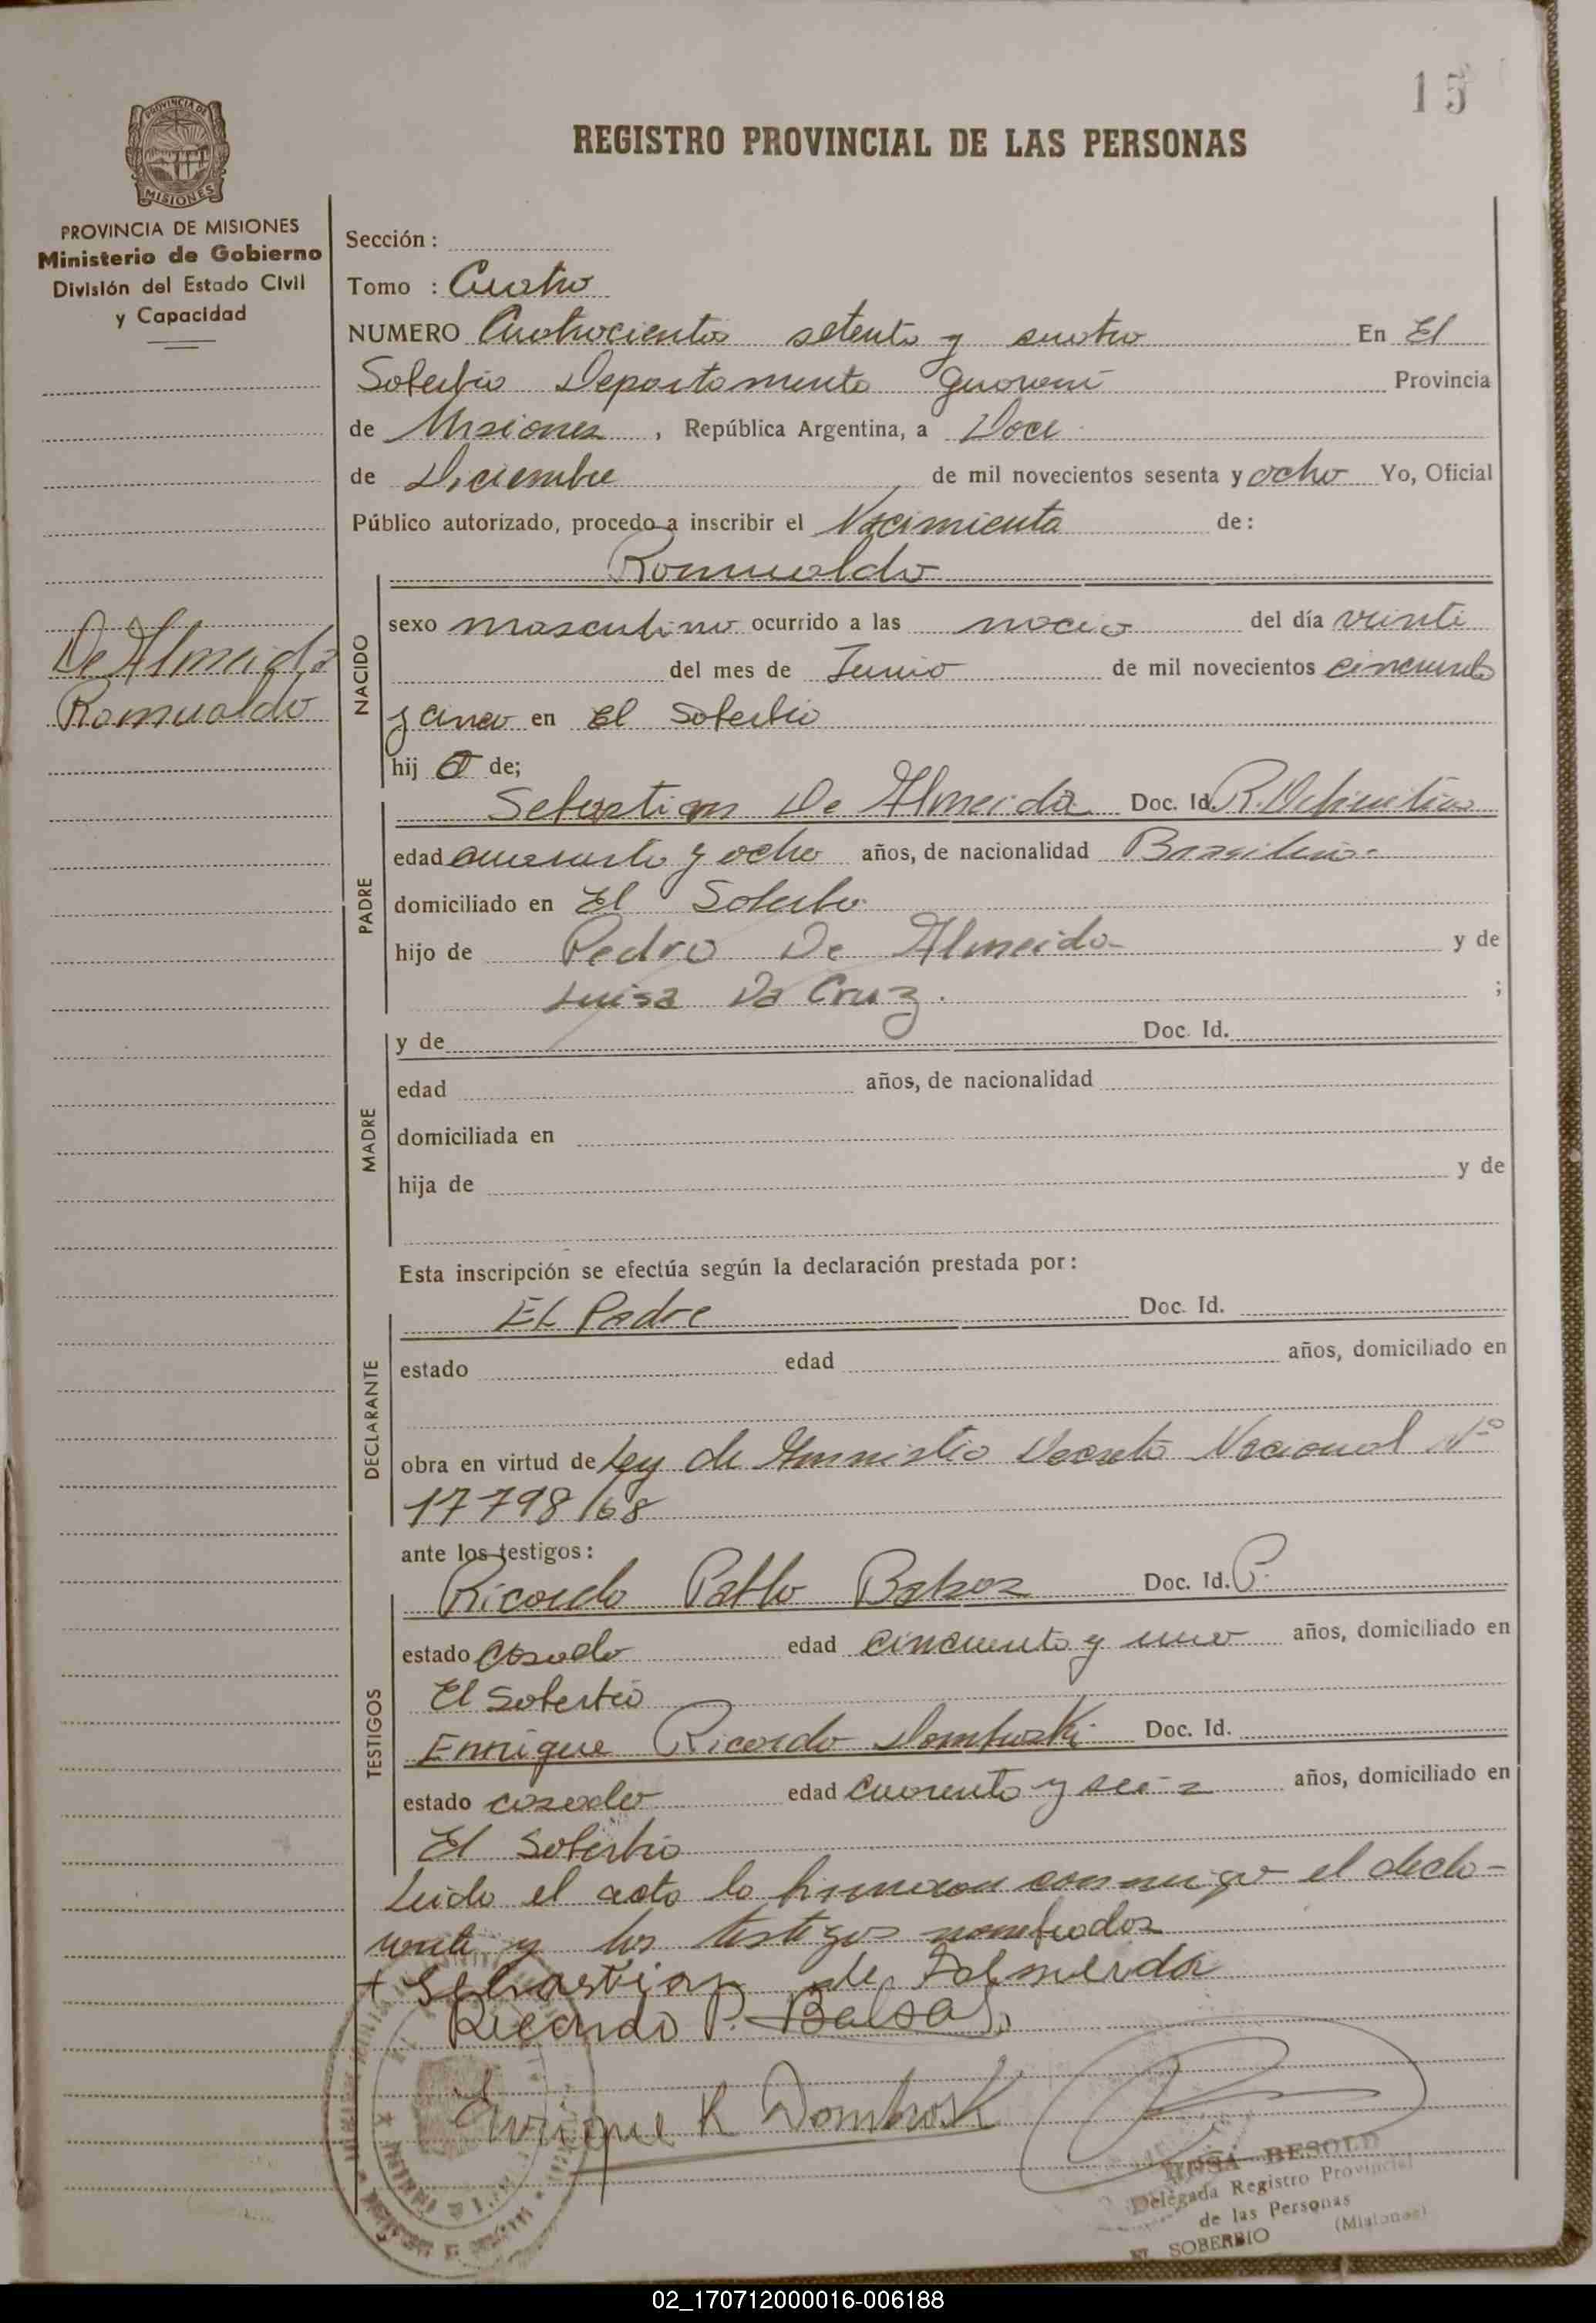 15
REGISTRO PROVINCIAL DE LAS PERSONAS
PROVINCIA DE MISIONES
PROVINCIA DE MISIONES
Ministerio de Gobierno
División del Estado Civil
y Capacidad
De Almeida
Romualdo
Sección :
Tomo : Cuatro
NUMERO Cuatrocientos setenta y cuatro En El
Soberbio Departamento Guaraní Provincia
de Misiones , República Argentina, a Doce
de Diciembre de mil novecientos sesenta y ocho Yo, Oficial
Público autorizado, procedo a inscribir el Nacimiento de:
Romualdo
NACIDO
sexo masculino ocurrido a las del día veinte
del mes de Junio de mil novecientos cincuenta
y cinco en El Soberbio
hij o de;
PADRE
Sebastian De Almeida Doc. Id. R. Definitivo
edad cuarenta y ocho años, de nacionalidad Brasileño
domiciliado en El Soberbio
hijo de Pedro De Almeida y de
Luisa Da Cruz. ;
MADRE
y de Doc. Id.
edad años, de nacionalidad
domiciliada en
hija de y de
Esta inscripción se efectúa según la declaración prestada por:
DECLARANTE
EL Padre Doc. Id.
estado edad años, domiciliado en
obra en virtud de Ley de Amnistia Decreto Nacional Nº
17798/68
ante los testigos:
TESTIGOS
Ricardo Pablo Balsaz Doc. Id.
estado casado edad cincuenta y uno años, domiciliado en
El Soberbio
Enrique Ricardo Domboski Doc. Id.
estado casado edad cuarenta y seis años, domiciliado en
El Soberbio
Leido el acta la firmaron conmigo el decla-
rante y los testigos nombrados
+ Sebastian de Almeida
Ricardo P. Balsas
Enrique R Domboski
ROSA BESOLD
Delegada Registro Provincial
de las Personas
EL SOBERBIO (Misiones)
02_170712000016-006188